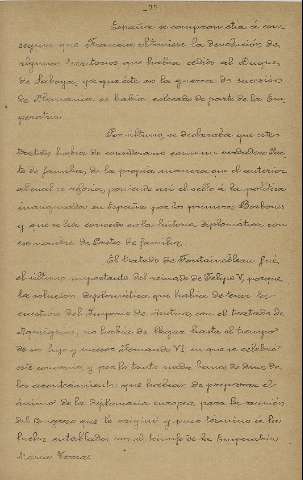 España se comprometía á con-
seguir que Francia obtuviese la devolución de
algunos territorios que había cedido al Duque
de Saboya, ya que éste en la guerra de sucesión
de Alemania se había colocado de parte de la Em-
peratriz.
Por último, se declaraba que este
tratado había de considerarse como un verdadero Pac-
to de familia, de la propia manera que el anterior
al cual se refería, poniendo así el sello á la política
inaugurada en España por los primeros Borbones
y que se ha conocido en la historia diplomática con
ese nombre de Pactos de familia.
El tratado de Fontainebleau fué
el último importante del reinado de Felipe V, porque
la solución diplomática que había de tener la
cuestión del Imperio de
Aquisgran, no había de llegar hasta el tiempo
de su hijo y sucesor Fernando VI en que se celebró
este convenio, y por lo tanto nada hemos de decir de
los acontecimientos que habían de preparar el
ánimo de la diplomacia europea para la reunión
del Congreso que lo originó y puso término á las
luchas entabladas con el triunfo de la Emperatriz
María Teresa.